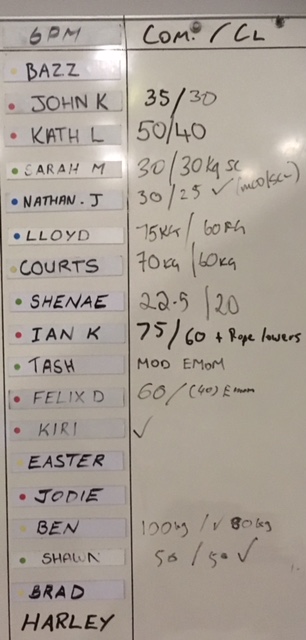 6PM COM. / CL
BAZZ
JOHN K 35/30
KATH L 50/40
SARAH M 30/30kg sc
NATHAN. J 30/25 ✓ (mod/sc)
LLOYD 75KG/ 60KG
COURTS 70KG /60KG
SHENAE 22.5 /20
IAN K 75/60 + Rope lowers
TASH MOD EMOM
FELIX D 60/(40) Emom
KIRI ✓
EASTER
JODIE
BEN 100kg /✓ 80kg
SHAWN 50 / 50 ✓
BRAD
HARLEY